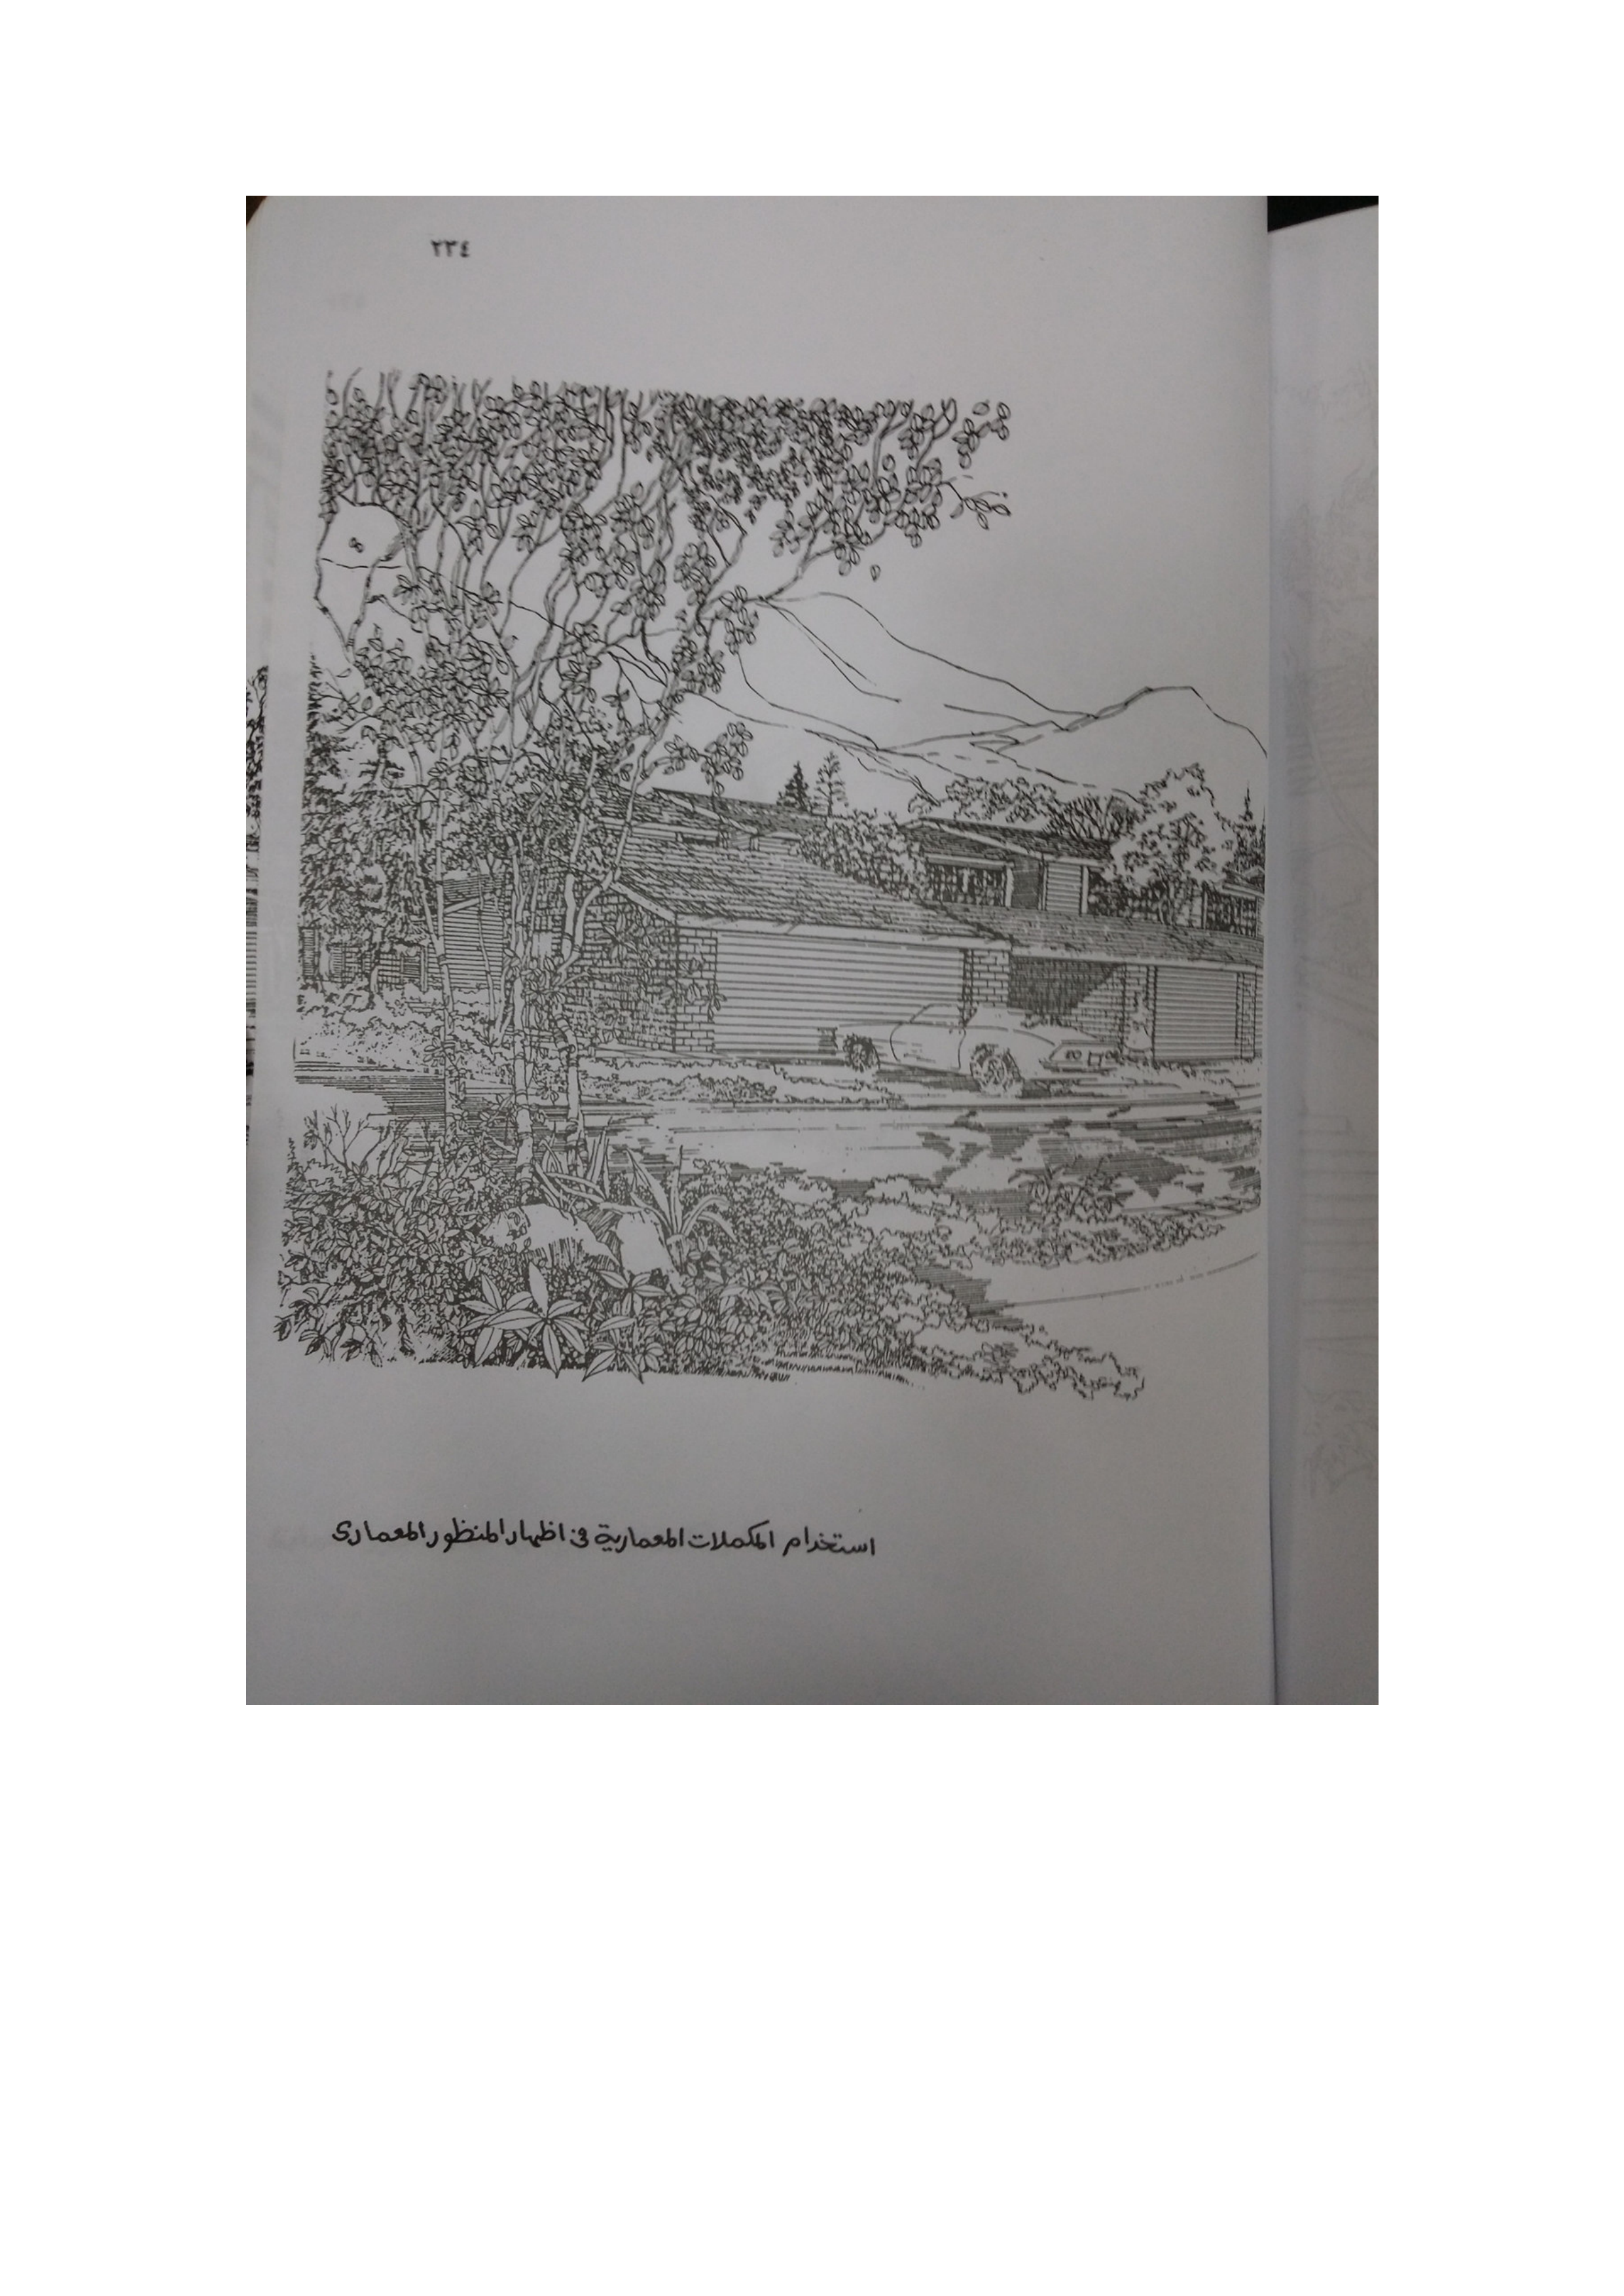 ٢٣٤
استخدام المكملات المعمارية فى اظهار المنظور المعمارى